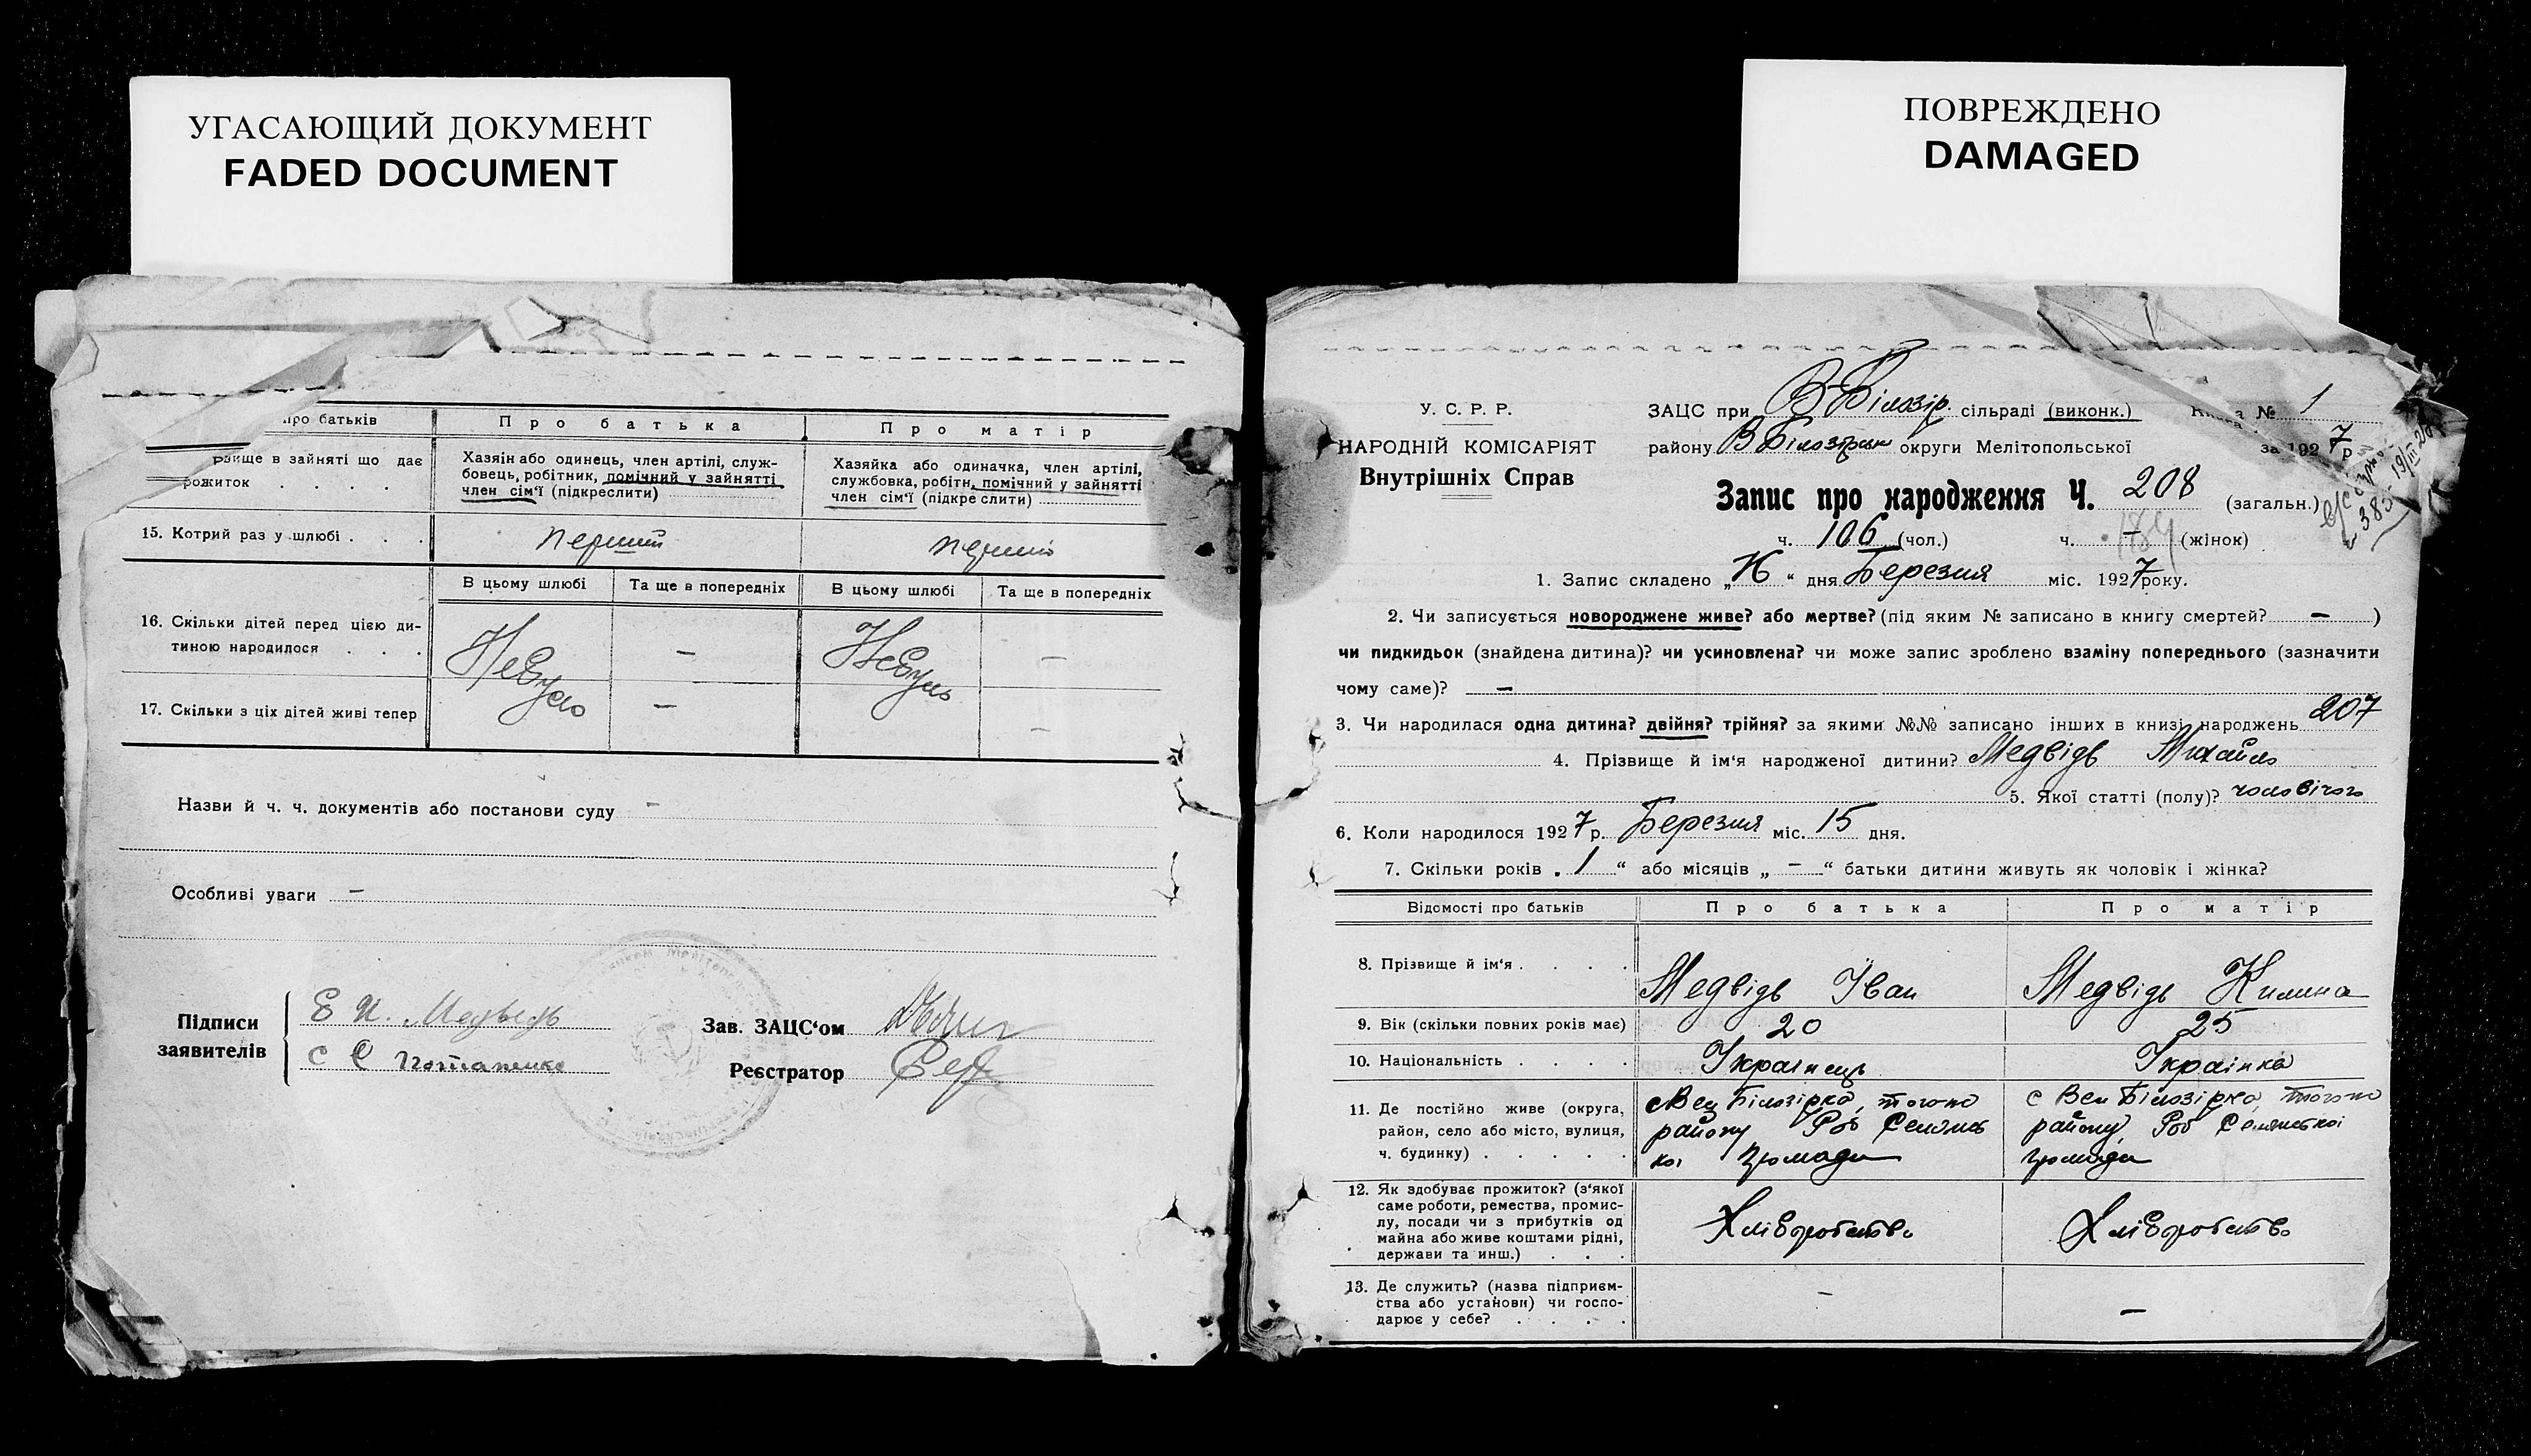 УГАСАЮЩИЙ ДОКУМЕНТ
FADED DOCUMENT
ПОВРЕЖДЕНО
DAMAGED
про батьків
Про батька
Про матір
вище в зайняті що дає
рожиток . . . .
Хазяін або одинець, член артілі, служ-
бовець, робітник, помічний у зайнятті
член сім'ї (підкреслити)
Хазяйка або одиначка, член артілі,
службовка, робітн, помічний у зайнятті
член сім'ї (підкреслити)
15. Котрий раз у шлюбі . . .
перший
перший
В цьому шлюбі
Та ще в попередніх
В цьому шлюбі
Та ще в попередніх
16. Скільки дітей перед цією ди-
тиною народилося . . .
Небуло – Небуло –
17. Скільки з ціх дітей живі тепер
– –
Назви й ч. ч. документів або постанови суду –
Особливі уваги –
Підписи
заявителів
Е И. Медведь
с С Потапенко
Зав. ЗАЦС'ом
Реєстратор
У. С. Р. Р.
НАРОДНІЙ КОМІСАРІЯТ
Внутрішніх Справ
ЗАЦС при В-Білозір. сільраді (виконк.)
№ 1
району В Білозірськ округи Мелітопольської
за 1927 р
Запис про народження Ч. 208 (загальн.)
385 - 19/III 28
ч. 106 (чол.) ч. – (жінок)
184
1. Запис складено „ “ дня Березня міс. 1927 року.
2. Чи записується новороджене живе? або мертве? (під яким № записано в книгу смертей? – )
чи пидкидьок (знайдена дитина)? чи усиновлена? чи може запис зроблено взаміну попереднього (зазначити
чому саме)? –
3. Чи народилася одна дитина? двійня? трійня? за якими №№ записано інших в книзі народжень 207
4. Прізвище й ім'я народженої дитини? Медвідь Михайло
5. Якої статті (полу)? чоловічого
6. Коли народилося 1927 р. Березня міс. 15 дня.
7. Скільки років „ 1 “ або місяців „ – “ батьки дитини живуть як чоловік і жінка?
Відомості про батьків
Про батька
Про матір
8. Прізвище й ім'я . . . .
Медвідь Іван
Медвідь Килина
9. Вік (скільки повних років має)
20
25
10. Національність . . . .
Українець
Українка
11. Де постійно живе (округа,
район, село або місто, вулиця,
ч. будинку) . . . . .
с Вел Білозірка, того ж
району Роб Селянсь
кої громади
с Вел Білозірка, того ж
району, Роб Селянської
громади
12. Як здобуває прожиток? (з'якої
саме роботи, ремества, промис-
лу, посади чи з прибутків од
майна або живе коштами рідні,
держави та инш.) . . .
Хліборобство
Хліборобство
13. Де служить? (назва підприєм-
ства або установи) чи госпо-
дарює у себе? . . . .
–
–